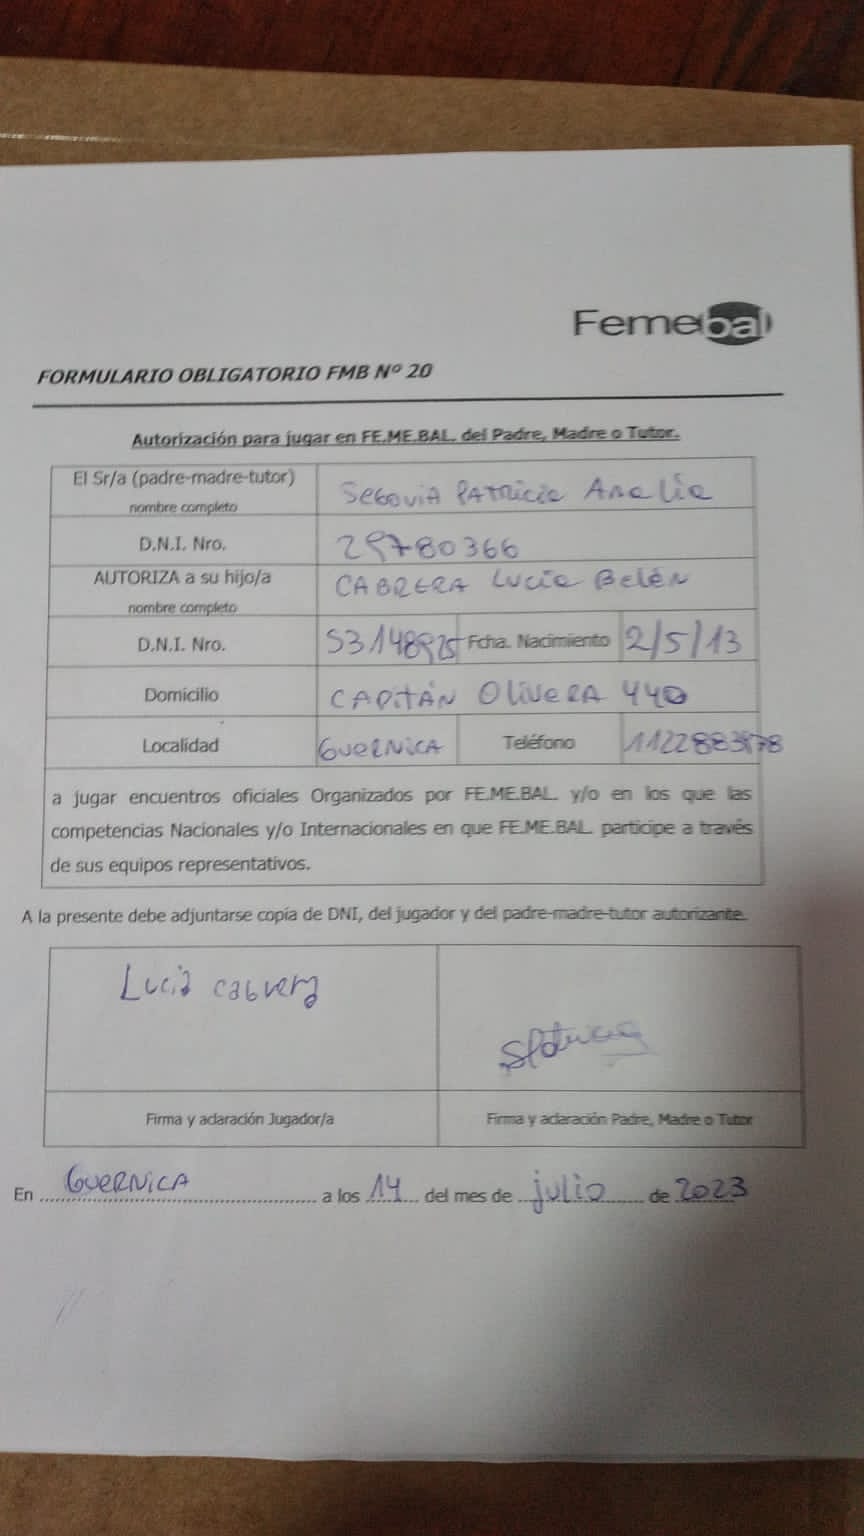 Femebal
FORMULARIO OBLIGATORIO FMB Nº 20
Autorización para jugar en FE.ME.BAL. del Padre, Madre o Tutor.
El Sr/a (padre-madre-tutor) SEGOVIA PATRICIA ANALÍA
nombre completo
D.N.I. Nro. 29780366
AUTORIZA a su hijo/a CABRERA Lucía Belén
nombre completo
D.N.I. Nro. 53148925 Fcha. Nacimiento 2/5/13
Domicilio CAPITÁN OlivERA 440
Localidad GUERNICA Teléfono
a jugar encuentros oficiales Organizados por FE.ME.BAL. y/o en los que las
competencias Nacionales y/o Internacionales en que FE.ME.BAL. participe a través
de sus equipos representativos.
A la presente debe adjuntarse copia de DNI, del jugador y del padre-madre-tutor autorizante.
Lucia cabrera
Firma y aclaración Jugador/a Firma y aclaración Padre, Madre o Tutor
En GUERNICA a los 14 del mes de julio de 2023